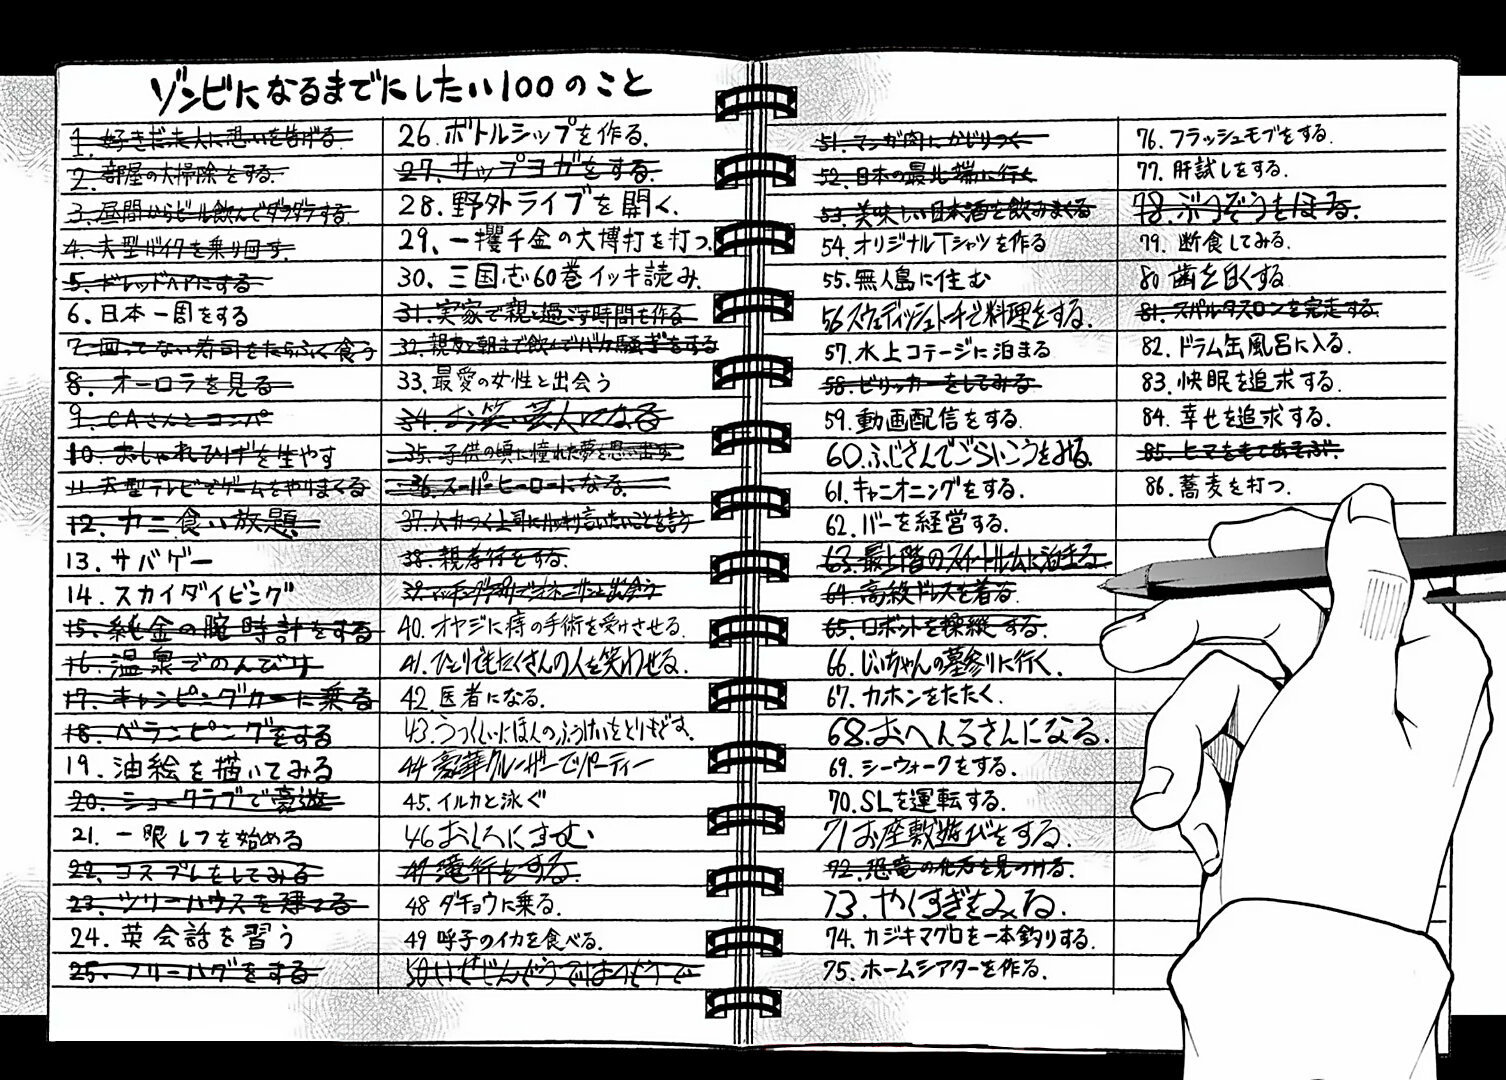 ゾンビになるまでにしたい100のこと
1. 好きだった人に想いを告げる
2. 部屋の大掃除をする.
3. 昼間からビール飲んでダラダラする
4. 大型バイクを乗り回す.
5. ドレッドヘアにする
6. 日本一周をする
7. 回ってない寿司をたらふく食う
8. オーロラを見る
9. CAさんとコンパ
10. おしゃれひげを生やす
11. 大型テレビでゲームをやりまくる
12. カニ食い放題
13. サバゲー
14. スカイダイビング
15. 純金の腕時計をする
16. 温泉でのんびり
17. キャンピングカーに乗る
18. ベランピングをする
19. 油絵を描いてみる
20. ショークラブで豪遊
21. 一眼レフを始める
22. コスプレをしてみる
23. ツリーハウスを建てる
24. 英会話を習う
25. フリーハグをする
26. ボトルシップを作る.
27. サップヨガをする.
28. 野外ライブを開く.
29. 一攫千金の大博打を打つ.
30. 三国志60巻イッキ読み.
31. 実家で親と過ごす時間を作る
32. 親友と朝まで飲んでバカ騒ぎをする
33. 最愛の女性と出会う
34. お笑い芸人になる
35. 子供の頃に憧れた夢を思い出す
36. スーパーヒーローになる.
37. ムカつく上司にハッキリ言いたいことを言う
38. 親孝行をする.
39. マッチングアプリでオネーサンと出会う
40. オヤジに痔の手術を受けさせる.
41. ひとりでもたくさんの人を笑わせる.
42. 医者になる.
43. うつくしいにほんのふうけいをとりもどす.
44 豪華クルーザーでパーティー
45. イルカと泳ぐ
46 おしろにすむ
47 滝行をする.
48 ダチョウに乗る.
49 呼子のイカを食べる.
50
51. マンガ肉にかじりつく
52. 日本の最北端に行く
53. 美味しい日本酒を飲みまくる
54. オリジナルTシャツを作る
55. 無人島に住む
56 スウェディッシュトーチで料理をする.
57. 水上コテージに泊まる
58. ビリッカーをしてみる
59. 動画配信をする.
60. ふじさんでごらいこうをみる.
61. キャニオニングをする.
62. バーを経営する.
63. 最上階のスイートルームに泊まる
64. 高級ドレスを着る
65. ロボットを操縦する.
66. じいちゃんの墓参りに行く.
67. カホンをたたく.
68. おへんろさんになる.
69. シーウォークをする.
70. SLを運転する.
71 お座敷遊びをする.
72. 恐竜の化石を見つける.
73. やくすぎをみる.
74. カジキマグロを一本釣りする.
75. ホームシアターを作る.
76. フラッシュモブをする.
77. 肝試しをする.
78. ぶつぞうをほる.
79. 断食してみる.
80 歯を白くする
81. スパルタスロンを完走する.
82. ドラム缶風呂に入る.
83. 快眠を追求する.
84. 幸せを追求する.
85. ヒマをもてあそぶ.
86. 蕎麦を打つ.